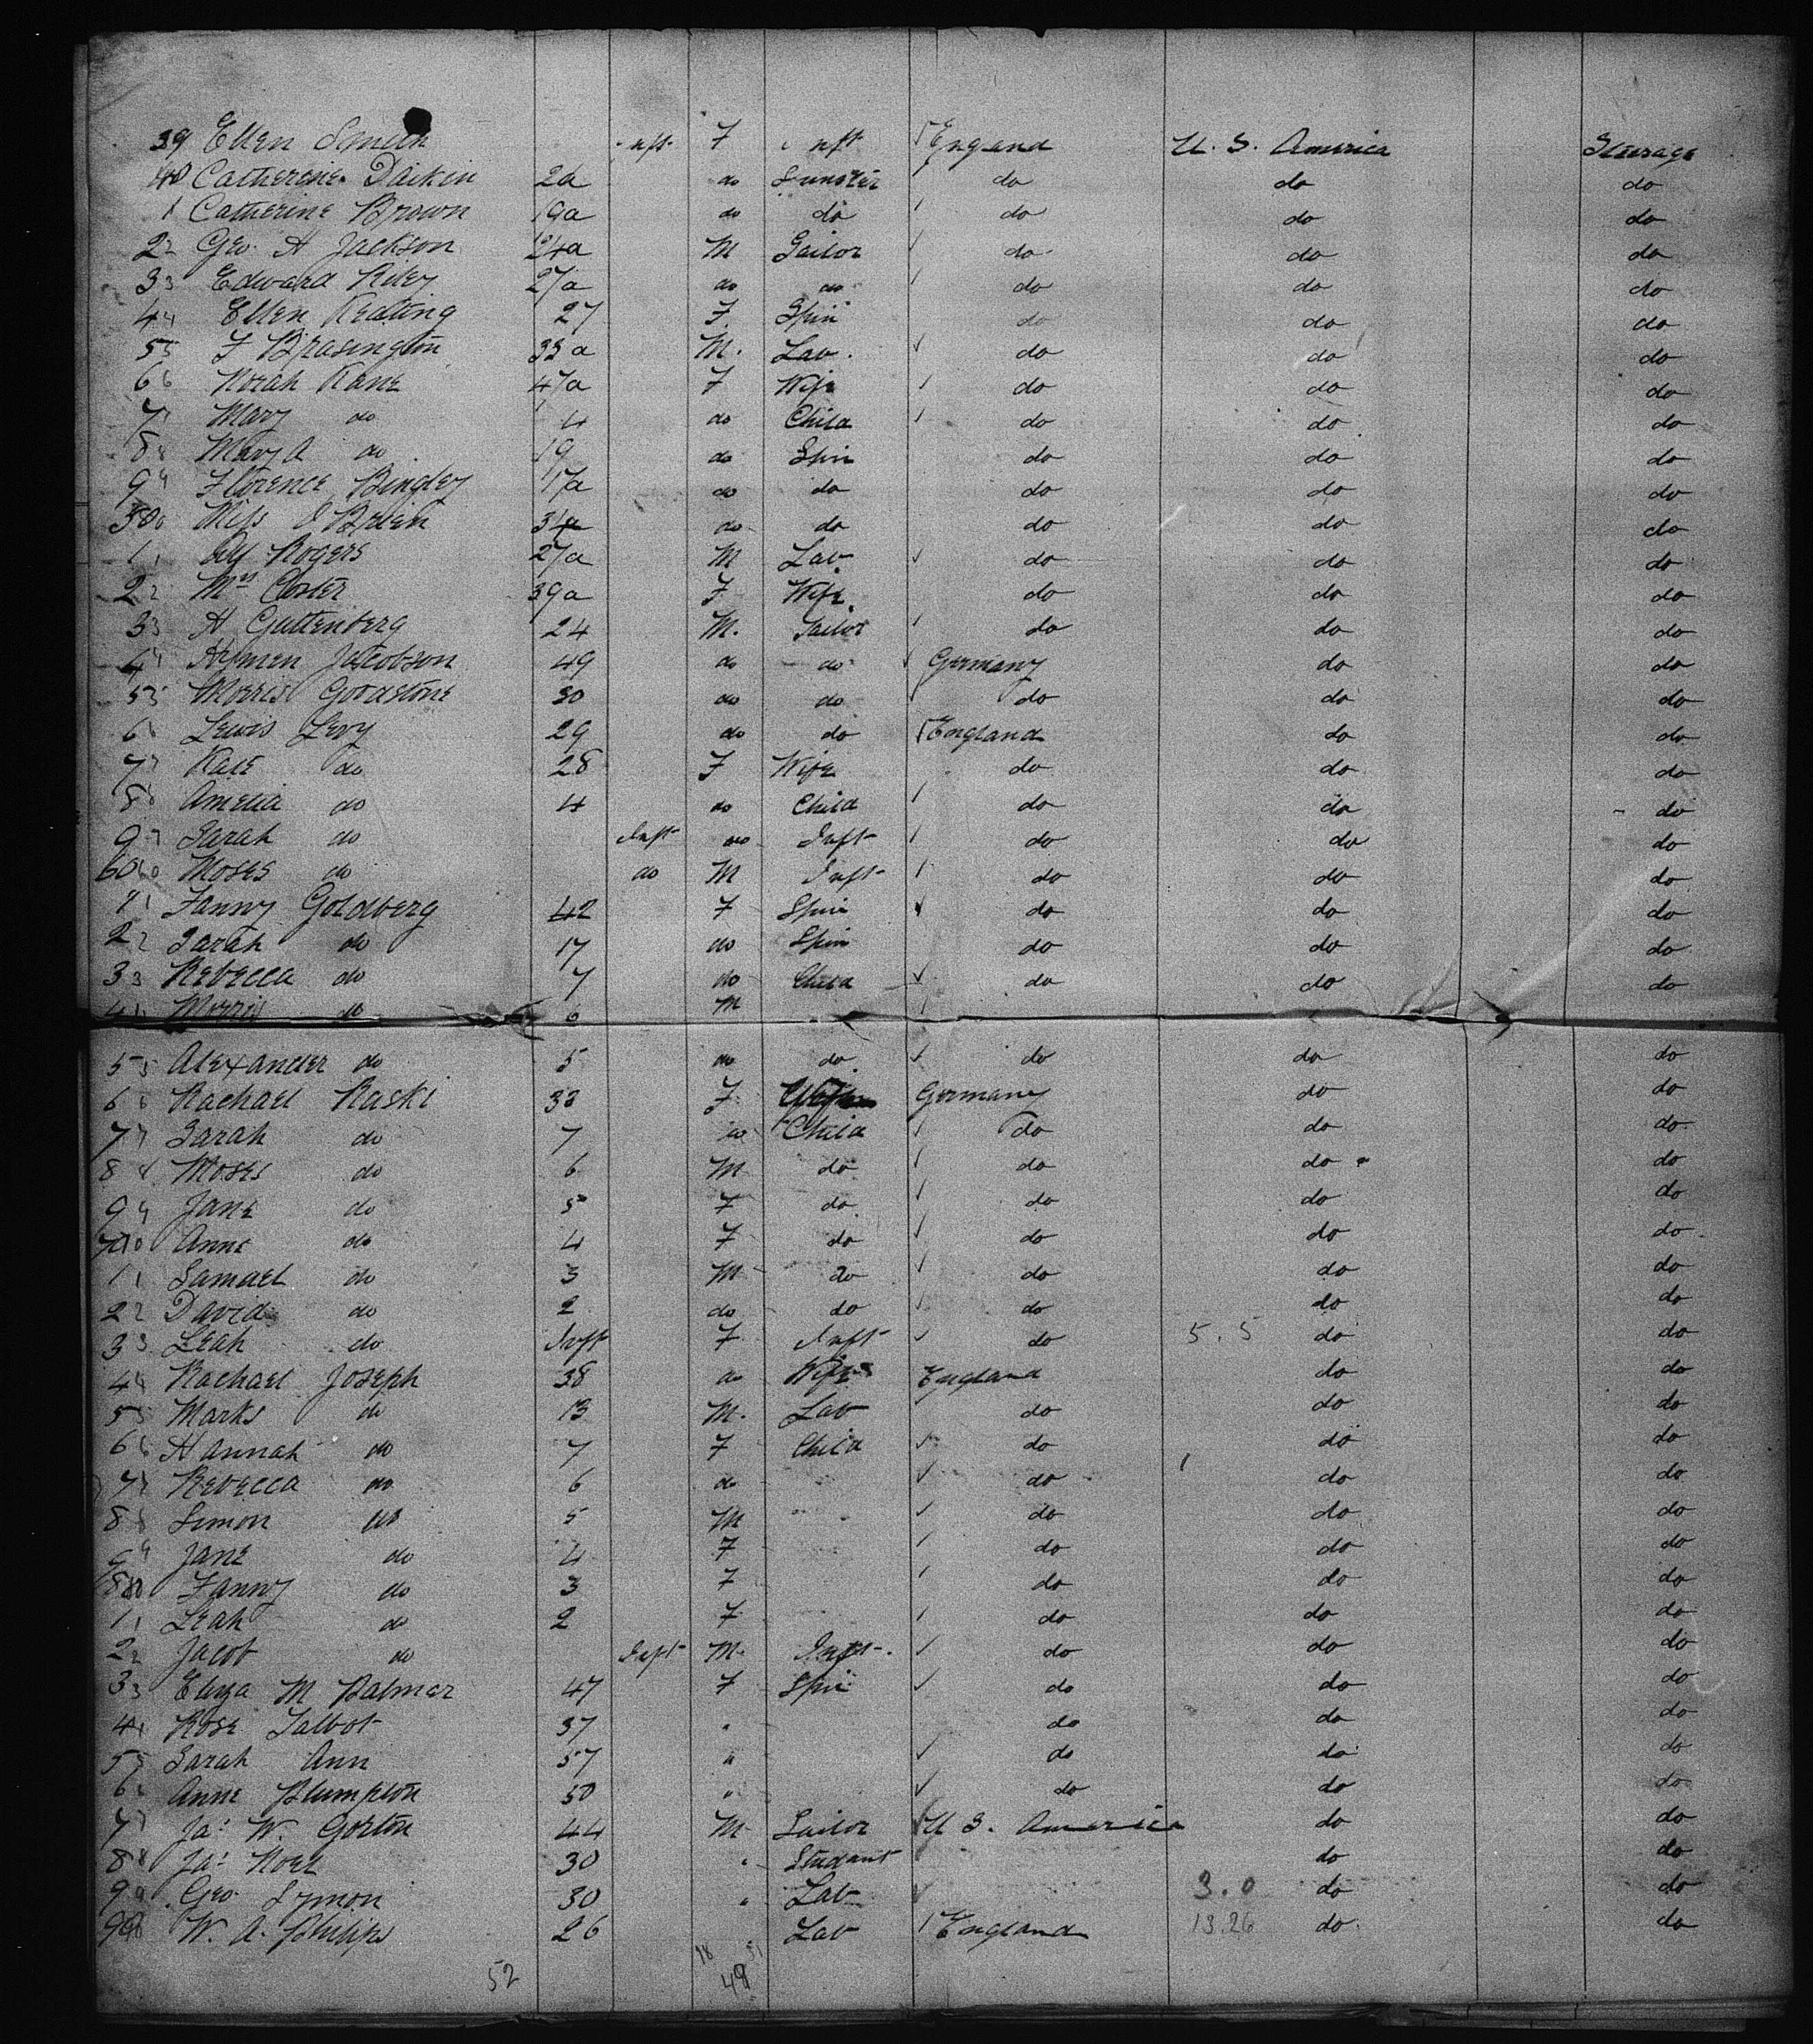 39 Ellen Smith Inft F Inft England U. S. America Steerage
40 Catherine Daikin 2a do Spinster do do do
1 Catherine Brown 19a do do do do do
2 2 Geo. H Jackson 24a M Tailor do do do
3 3 Edward Riley 27a do do do do do
4 4 Ellen Keating 27 F Spin do do do
5 5 F Brasington 33a M. Lab. do do do
6 6 Norah Kane 47a F Wife do do do
7 7 Mary do 4 do Child do do do
8 8 Mary A do 19 do Spin do do do
9 9 Florence Bingley 17a do do do do do
50 0 Miss O'Brien 34a do do do do do
1 1 Rogers 27a M Lab do do do
2 2 Mrs Coster 39a F Wife do do do
3 3 H Guttenberg 24 M. Tailor do do do
4 4 Hymen Jacobson 49 do do Germany do do
5 5 Morris Goodstone 30 do do do do do
6 6 Lewis Levy 29 do do England do do
7 7 Kate do 28 F Wife do do do
8 8 Amelia do 4 do Child do do do
9 9 Sarah do Inft do Inft do do do
60 60 Moses do do M Inft do do do
1 1 Fanny Goldberg 42 F Spin do do do
2 2 Sarah do 17 do Spin do do do
3 3 Rebecca do 7 do Child do do do
4 4 Morris do 6 M
5 5 Alexander do 5 do do do do do
6 6 Rachael Raski 33 F Germany do do
7 7 Sarah do 7 do Child do do do
8 8 Moses do 6 M do do do do
9 9 Jane do 5 F do do do do
70 0 Anne do 4 F do do do do
1 1 Samuel do 3 M do do do do
2 2 David do 2 do do do do do
3 3 Leah do Inft F Inft do 5.5 do do
4 4 Rachael Joseph 38 do Wife England do do
5 5 Marks do 13 M. Lab do do do
6 6 Hannah do 7 F Child do do do
7 7 Rebecca do 6 do do do do
8 8 Simon do 5 M do do do
9 9 Jane do 4 F do do do
80 80 Fanny do 3 F do do do
1 1 Leah do 2 F do do do
2 2 Jacob do Inft M. Inft. do do do
3 3 Eliza M Balmer 47 F Spin do do do
4 4 Rose Talbot 37 " do do do
5 5 Sarah Ann 57 " do do do
6 6 Anne Plumpton 50 " do do do
7 7 Jas W. Gorton 44 M Tailor U S. America do do
8 8 Jas Noel 30 " Student do do
9 9 Geo. Symon 30 " Lab 3.0 do do
90 90 W. A. Philips 26 Lab England 13.26 do do
52 18 51 49